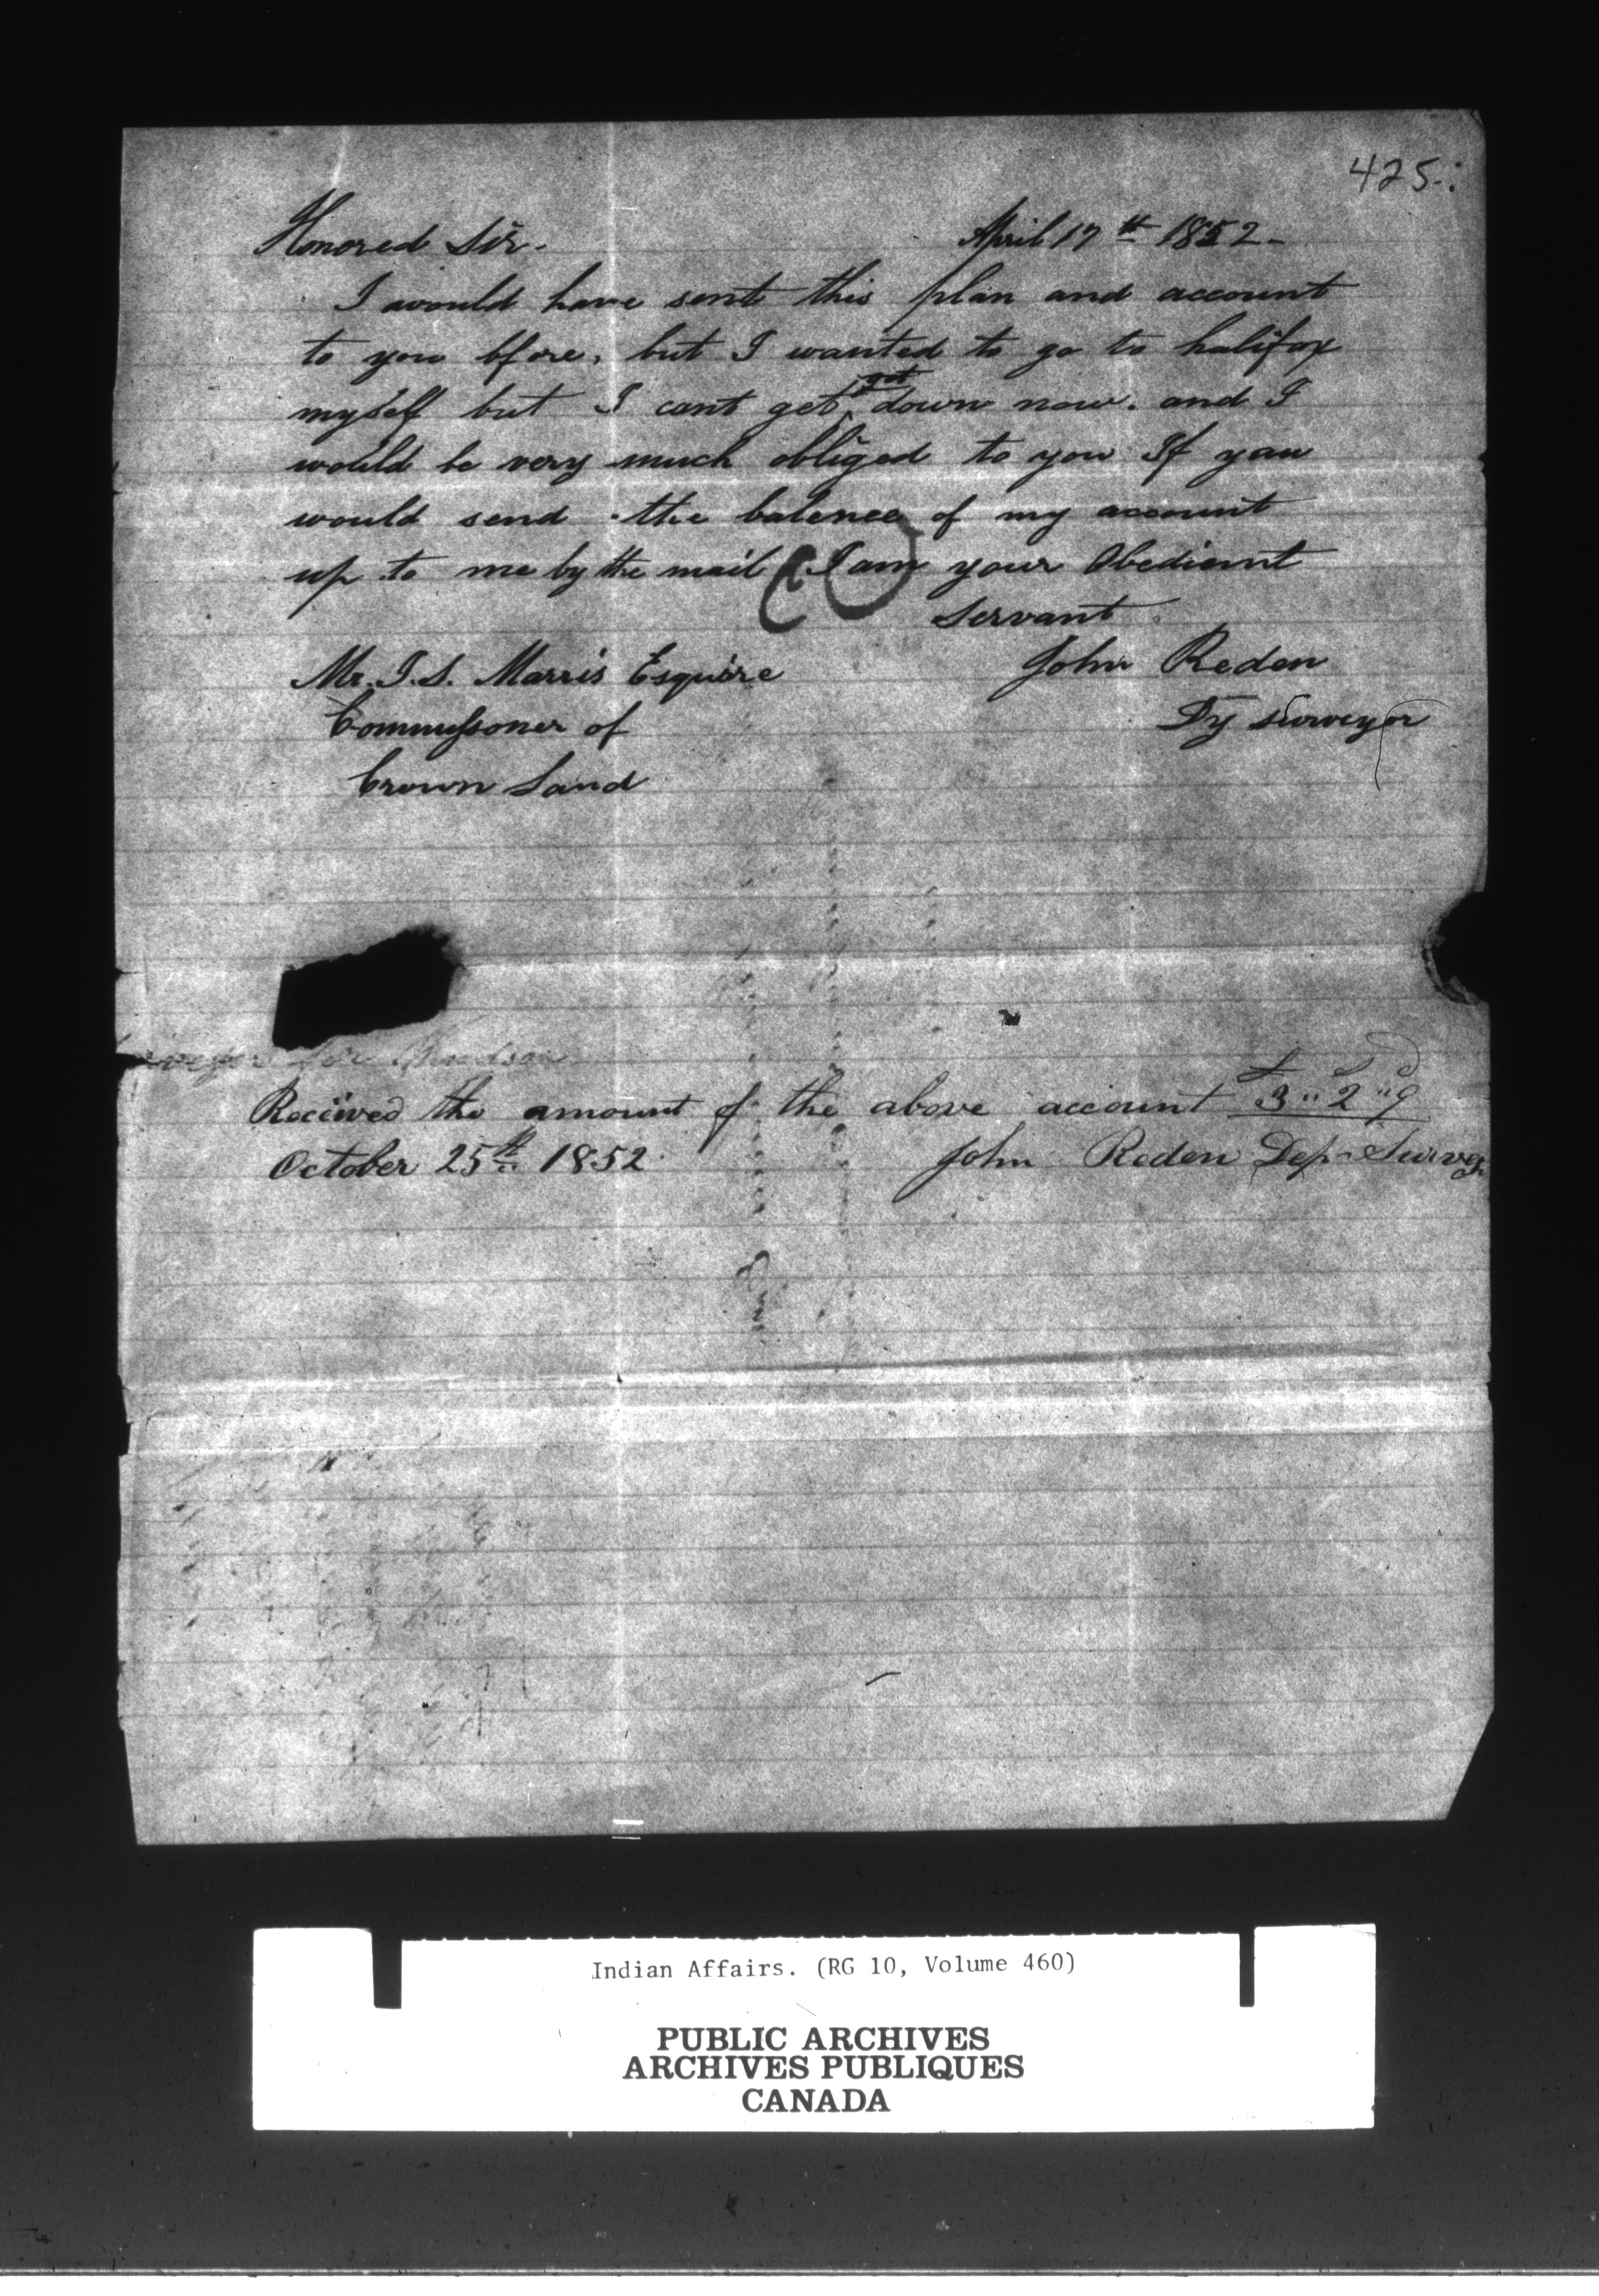 425.
Honored Sir. April 17th 1852-
I would have sent this plan and account
to you bfore, but I wanted to go to halifax
myself but I cant get down now. and I
would be very much obliged to you If you
would send the balence of my account
up to me by the mail I am your Obedient
Servant
Mr. J. S. Morris Esquire John Reden
Commissoner of Dy surveyor
Crown Land
Received the amount of the above account £3 " 2 " 9
October 25th 1852. John Reden Dep Survey
Indian Affairs. (RG 10, Volume 460)
PUBLIC ARCHIVES
ARCHIVES PUBLIQUES
CANADA